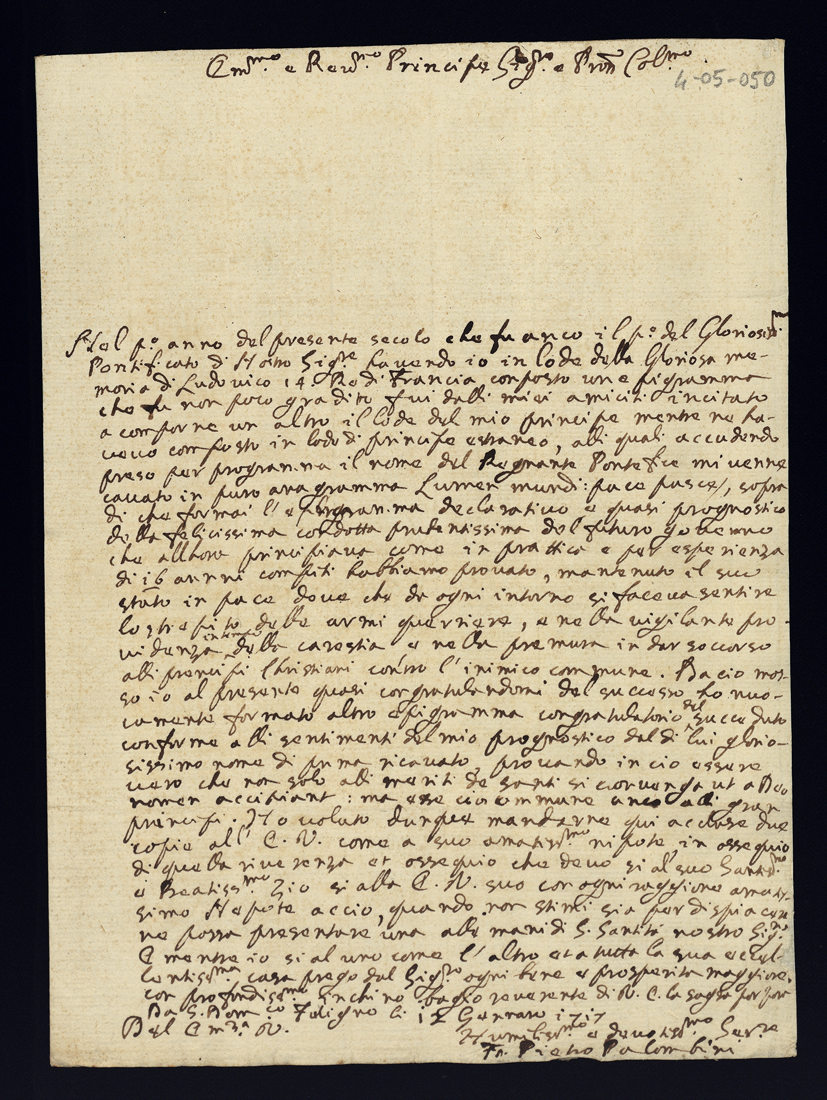 Em.mo e Rev.mo Principe Sig.re e Pron Col.mo
4-05-050
Nel p.o anno del presente secolo che fu anco il p.o del Gloriosiss.mo
Pontificato di Nostro Sig.re havendo io in lode della Gloriosa me-
moria di Ludovico 14 Re di Francia composto un epigramma
che fu non poco gradito fui dalli miei amicici incitato
a comporne un altro il lode del mio principe mentre ne ha-
vevo composto in lode di principe estraneo, alli quali accudendo
preso per programma il nome del Regnante Pontefice mi venne
cavato in puro anagramma Lumen mundi: pace pasces, sopra
di che formai l'epigramma declarativo e quasi prognostico
della felicissima condotta prudentissima del futuro governo
che allhora principiava come in prattica e per esperienza
di 16 anni compiti habbiamo provato, mantenuto il suo
stato in pace dove che da ogni intorno si faceva sentire
lo strepito delle armi guerriere, e nella vigilante pro-
videnza intorno della carestia e nella premura in dar soccorso
alli prencipi Christiani contro l'inimico commune. Da cio mos-
so io al presente quasi congratulandomi del successo ho nuo-
vamente formato altro epigramma congratulatorio del succeduto
conforme alli sentimenti del mio prognostico dal di lui glorio-
sissimo nome di prima ricavato, provando in cio essere
vero che non solo alli meriti de santi si convenga ut a Deo
nomen accipiant: ma esse cio commune anco alli gran
principi. Ho voluto dunque mandarne qui accluse due
copie all' E. V. come a suo amatiss.mo nipote in ossequio
di quella riverenza et ossequio che devo si al suo Santiss.mo
e Beatiss.mo Zio si alla E. V. suo con ogni raggione amatis-
simo Nepote accio, quando non stimi sia per dispiacere
ne possa presentare una alle mani di S. Santità nostro Sig.re
E mentre io si al uno come l'altro et a tutta la sua eccel-
lentissima casa prego dal Sig.re ogni bene e prosperità maggiore,
con profondiss.mo inchino bagio reverente di V. E. la sagra porpora
Da S. Dom.co Foligno li 12 Gennaro 1717
Del Em.za V.
Humiliss.mo e devotiss.mo Ser.re
Fr. Pietro Palombini